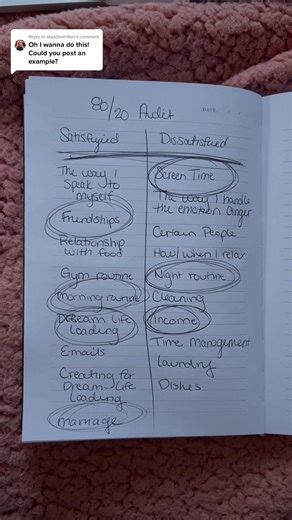 Reply to skyejhamilton's comment
Oh I wanna do this!
Could you post an
example?
80/20 Audit
DATE.
Satisfyied
Dissatisfied
The way I
speak to
myself
Friendships
Relationship
with food
Gym routine
Morning routine
Dream Life
Loading
Emails
Creating for
Dream Life
Loading
marriage
Screen Time
The way I handle
the emotion anger
Certain People
How/when I relax
Night routine
Cleaning
Income
Time Management
Laundry
Dishes